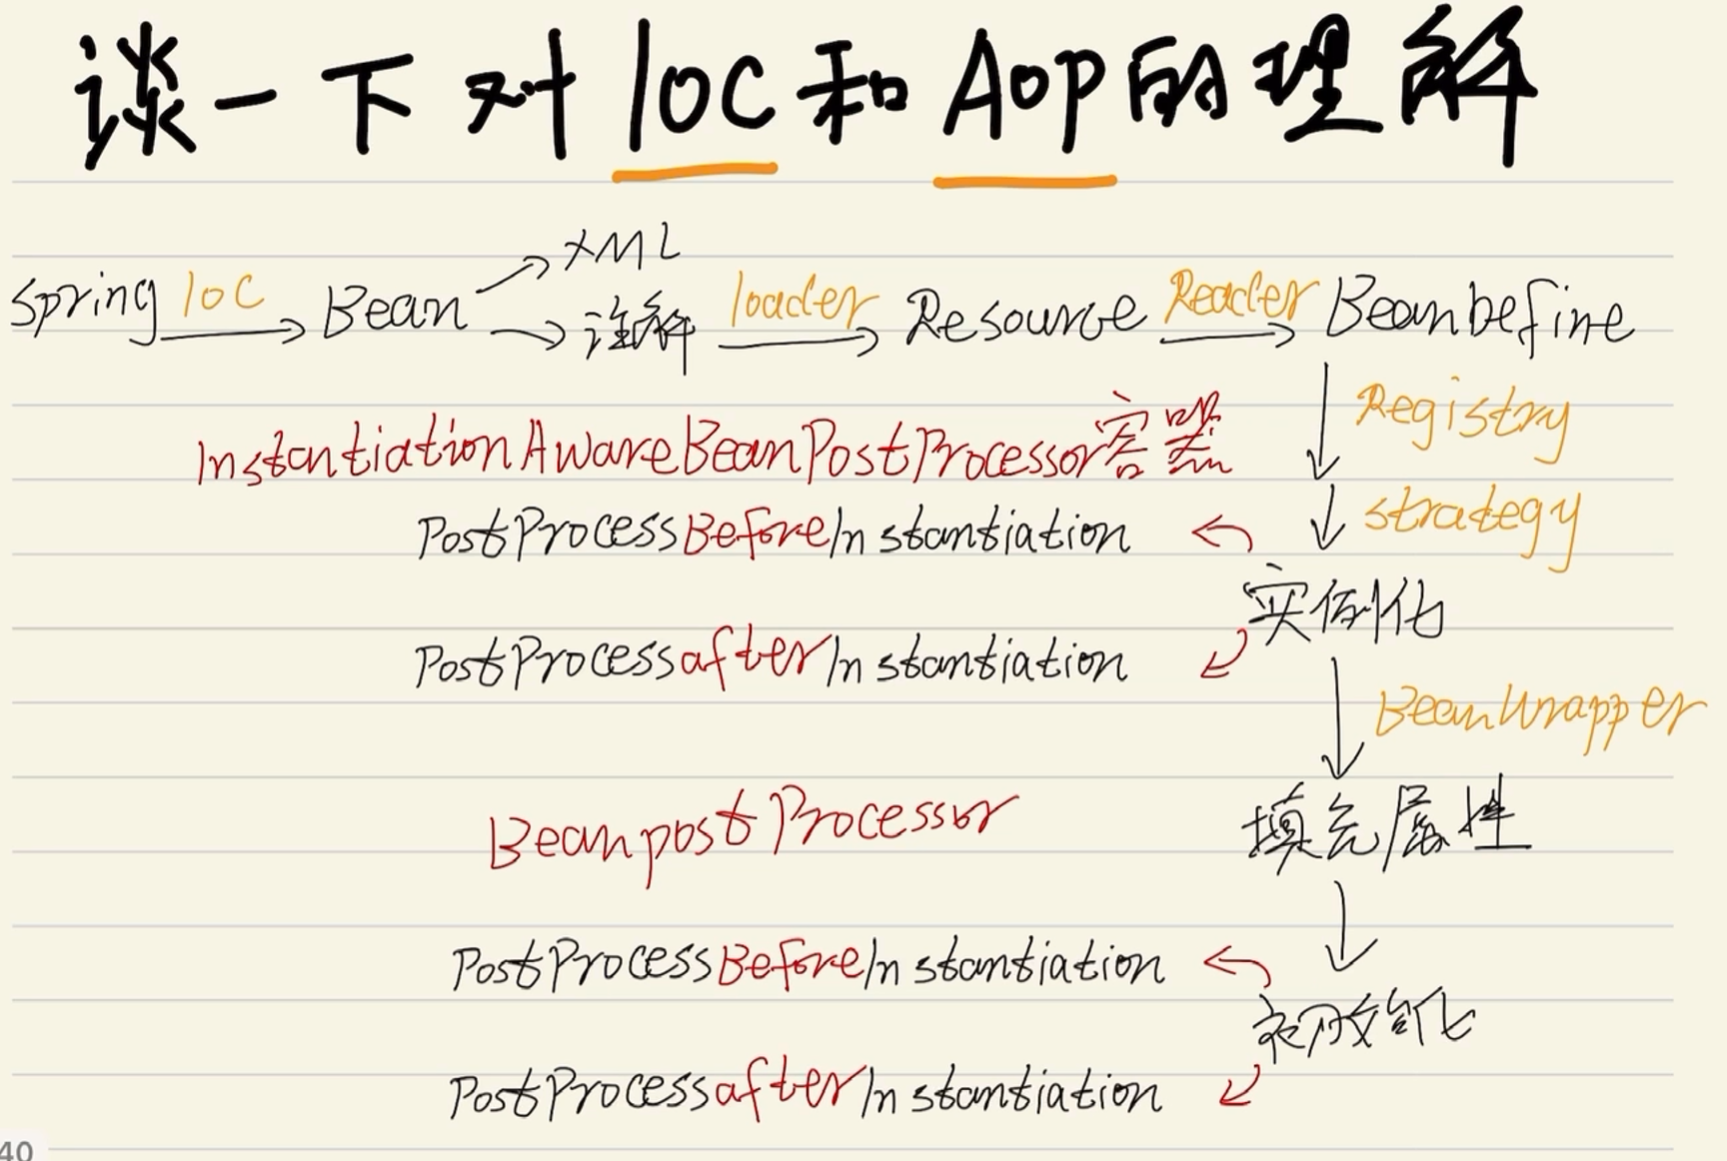 谈一下对IOC和AOP的理解
XML
Spring IOC Bean 注解 loader Resource Reader BeanDefine
Registry
InstantiationAwareBeanPostProcessor容器
strategy
PostProcessBeforeInstantiation
实例化
PostProcessafterInstantiation
BeanWrapper
BeanpostProcessor
填充属性
PostProcessBeforeInstantiation
初始化
PostProcessafterInstantiation
40